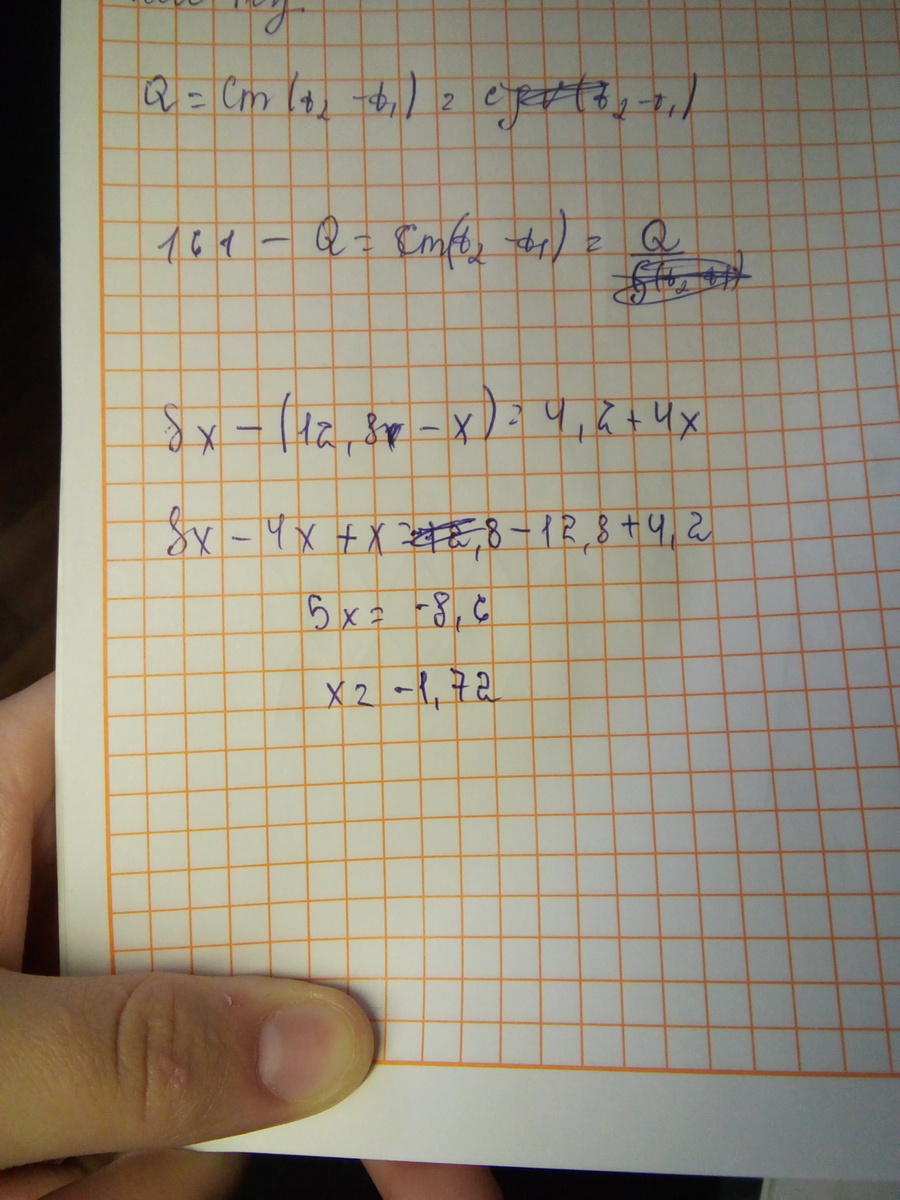 Q = Cm (t₂ - t₁) =
161 - Q = Cm(t₂ - t₁) = Q
8x - (12,8 - x) = 4,2 + 4x
8x - 4x + x = 12,8 - 12,8 + 4,2
5x = -8,6
x = -1,72